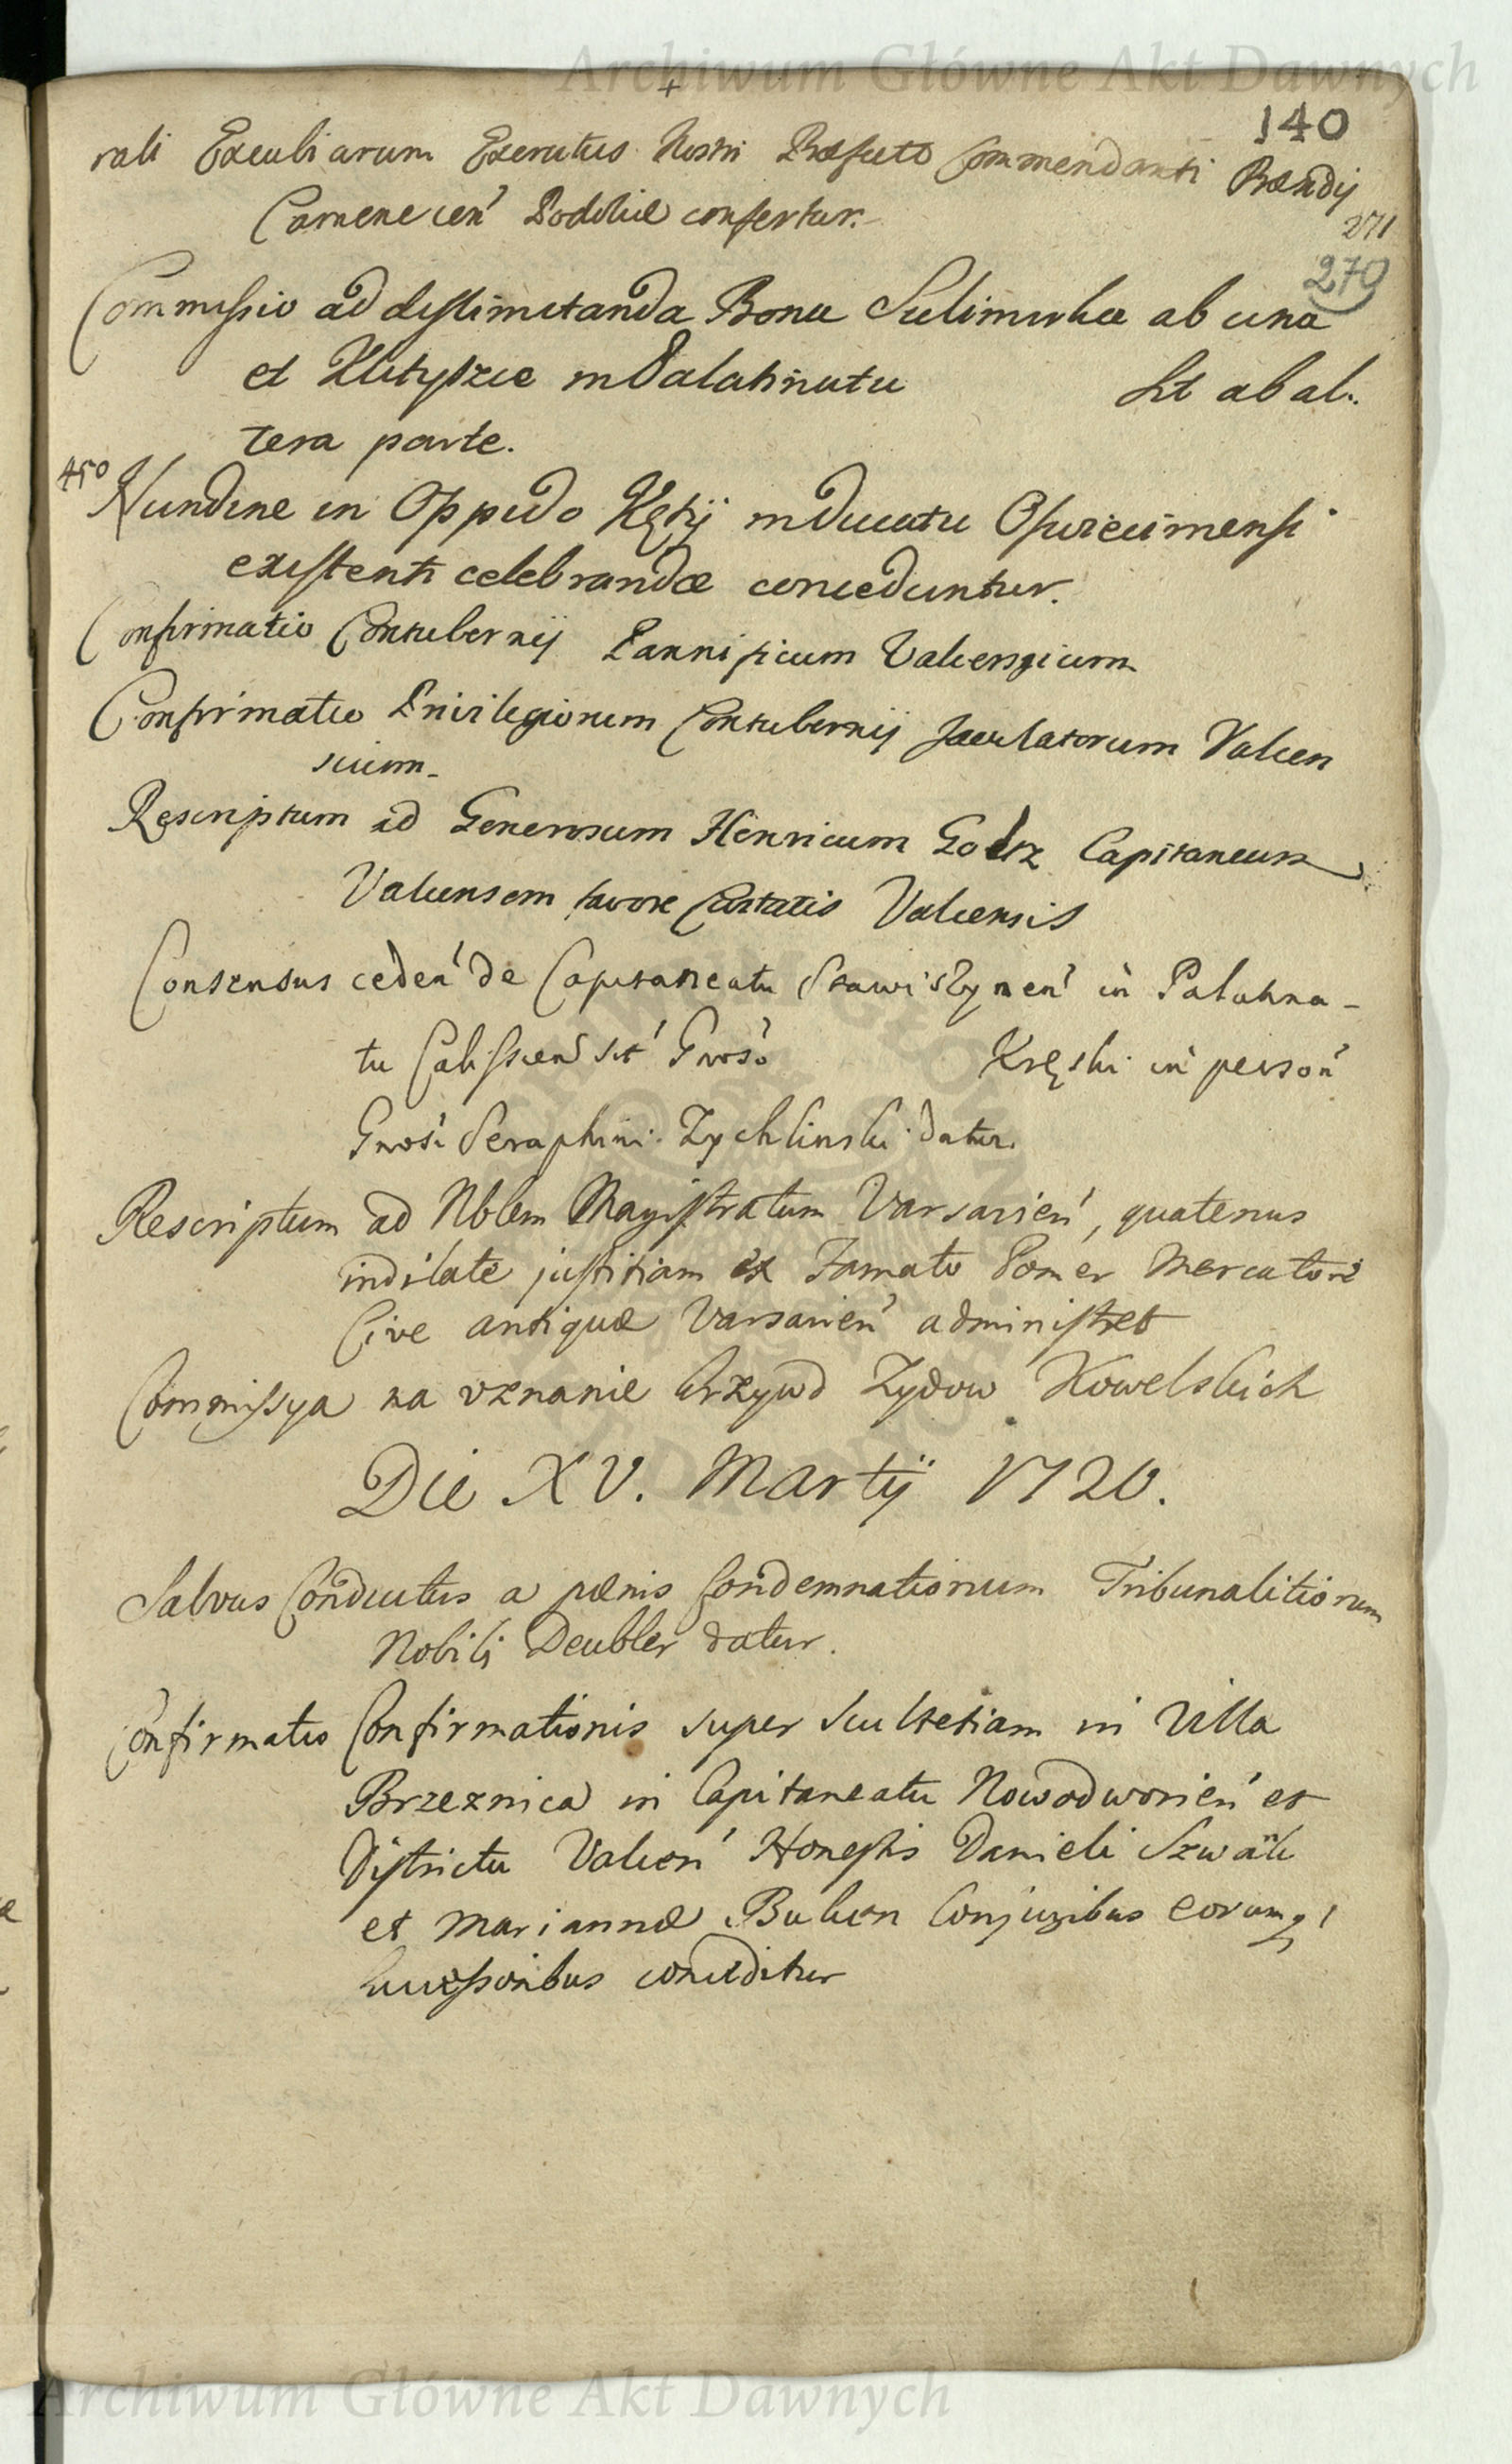 Archiwum Główne Akt Dawnych
140
rali Excubiarum Exercitus Nostri Præfecto Commendanti Præsidij
271
Camenecen' Podoliæ confertur.
270
Commissio ad disslimitanda Bona Sulimirka ab una
et Kutyszcze in Palatinatu sit ab al-
tera parte.
450 Nundinæ in Oppido Kęty in Ducatu Osviecimensi
existenti celebrandæ conceduntur.
Confirmatio Contubernij Pannificum Valcensium
Confirmatio Privilegiorum Contubernij Jaculatorum Valcen
sium.
Rescriptum ad Generosum Henricum Goltz Capitaneum
Valcensem favore Civitatis Valcensis
Consensus ceden' de Capitaneatu Stawiszynen' in Palatina-
tu Calissien' sit' Gnoso Kręski in person'
Gnosi Seraphini Zychlinski datur.
Rescriptum ad Nblem Magistratum Varsavien', quatenus
indilate justitiam ex Famato Pomer Mercatore
Cive antiquæ Varsavien' administret
Commissya na uznanie krzywd Zydow Kowelskich
Die XV. Martij 1720.
Salvus Conductus a pænis Condemnationum Tribunalitiorum
Nobili Deubler datur.
Confirmatio Confirmationis super Scultetiam in Villa
Brzeznica in Capitaneatu Nowodworien' et
Districtu Valcen' Honestis Danieli Szwałk
et Mariannæ Bulien Conjugibus eorumq'
successoribus conceditur
Archiwum Główne Akt Dawnych